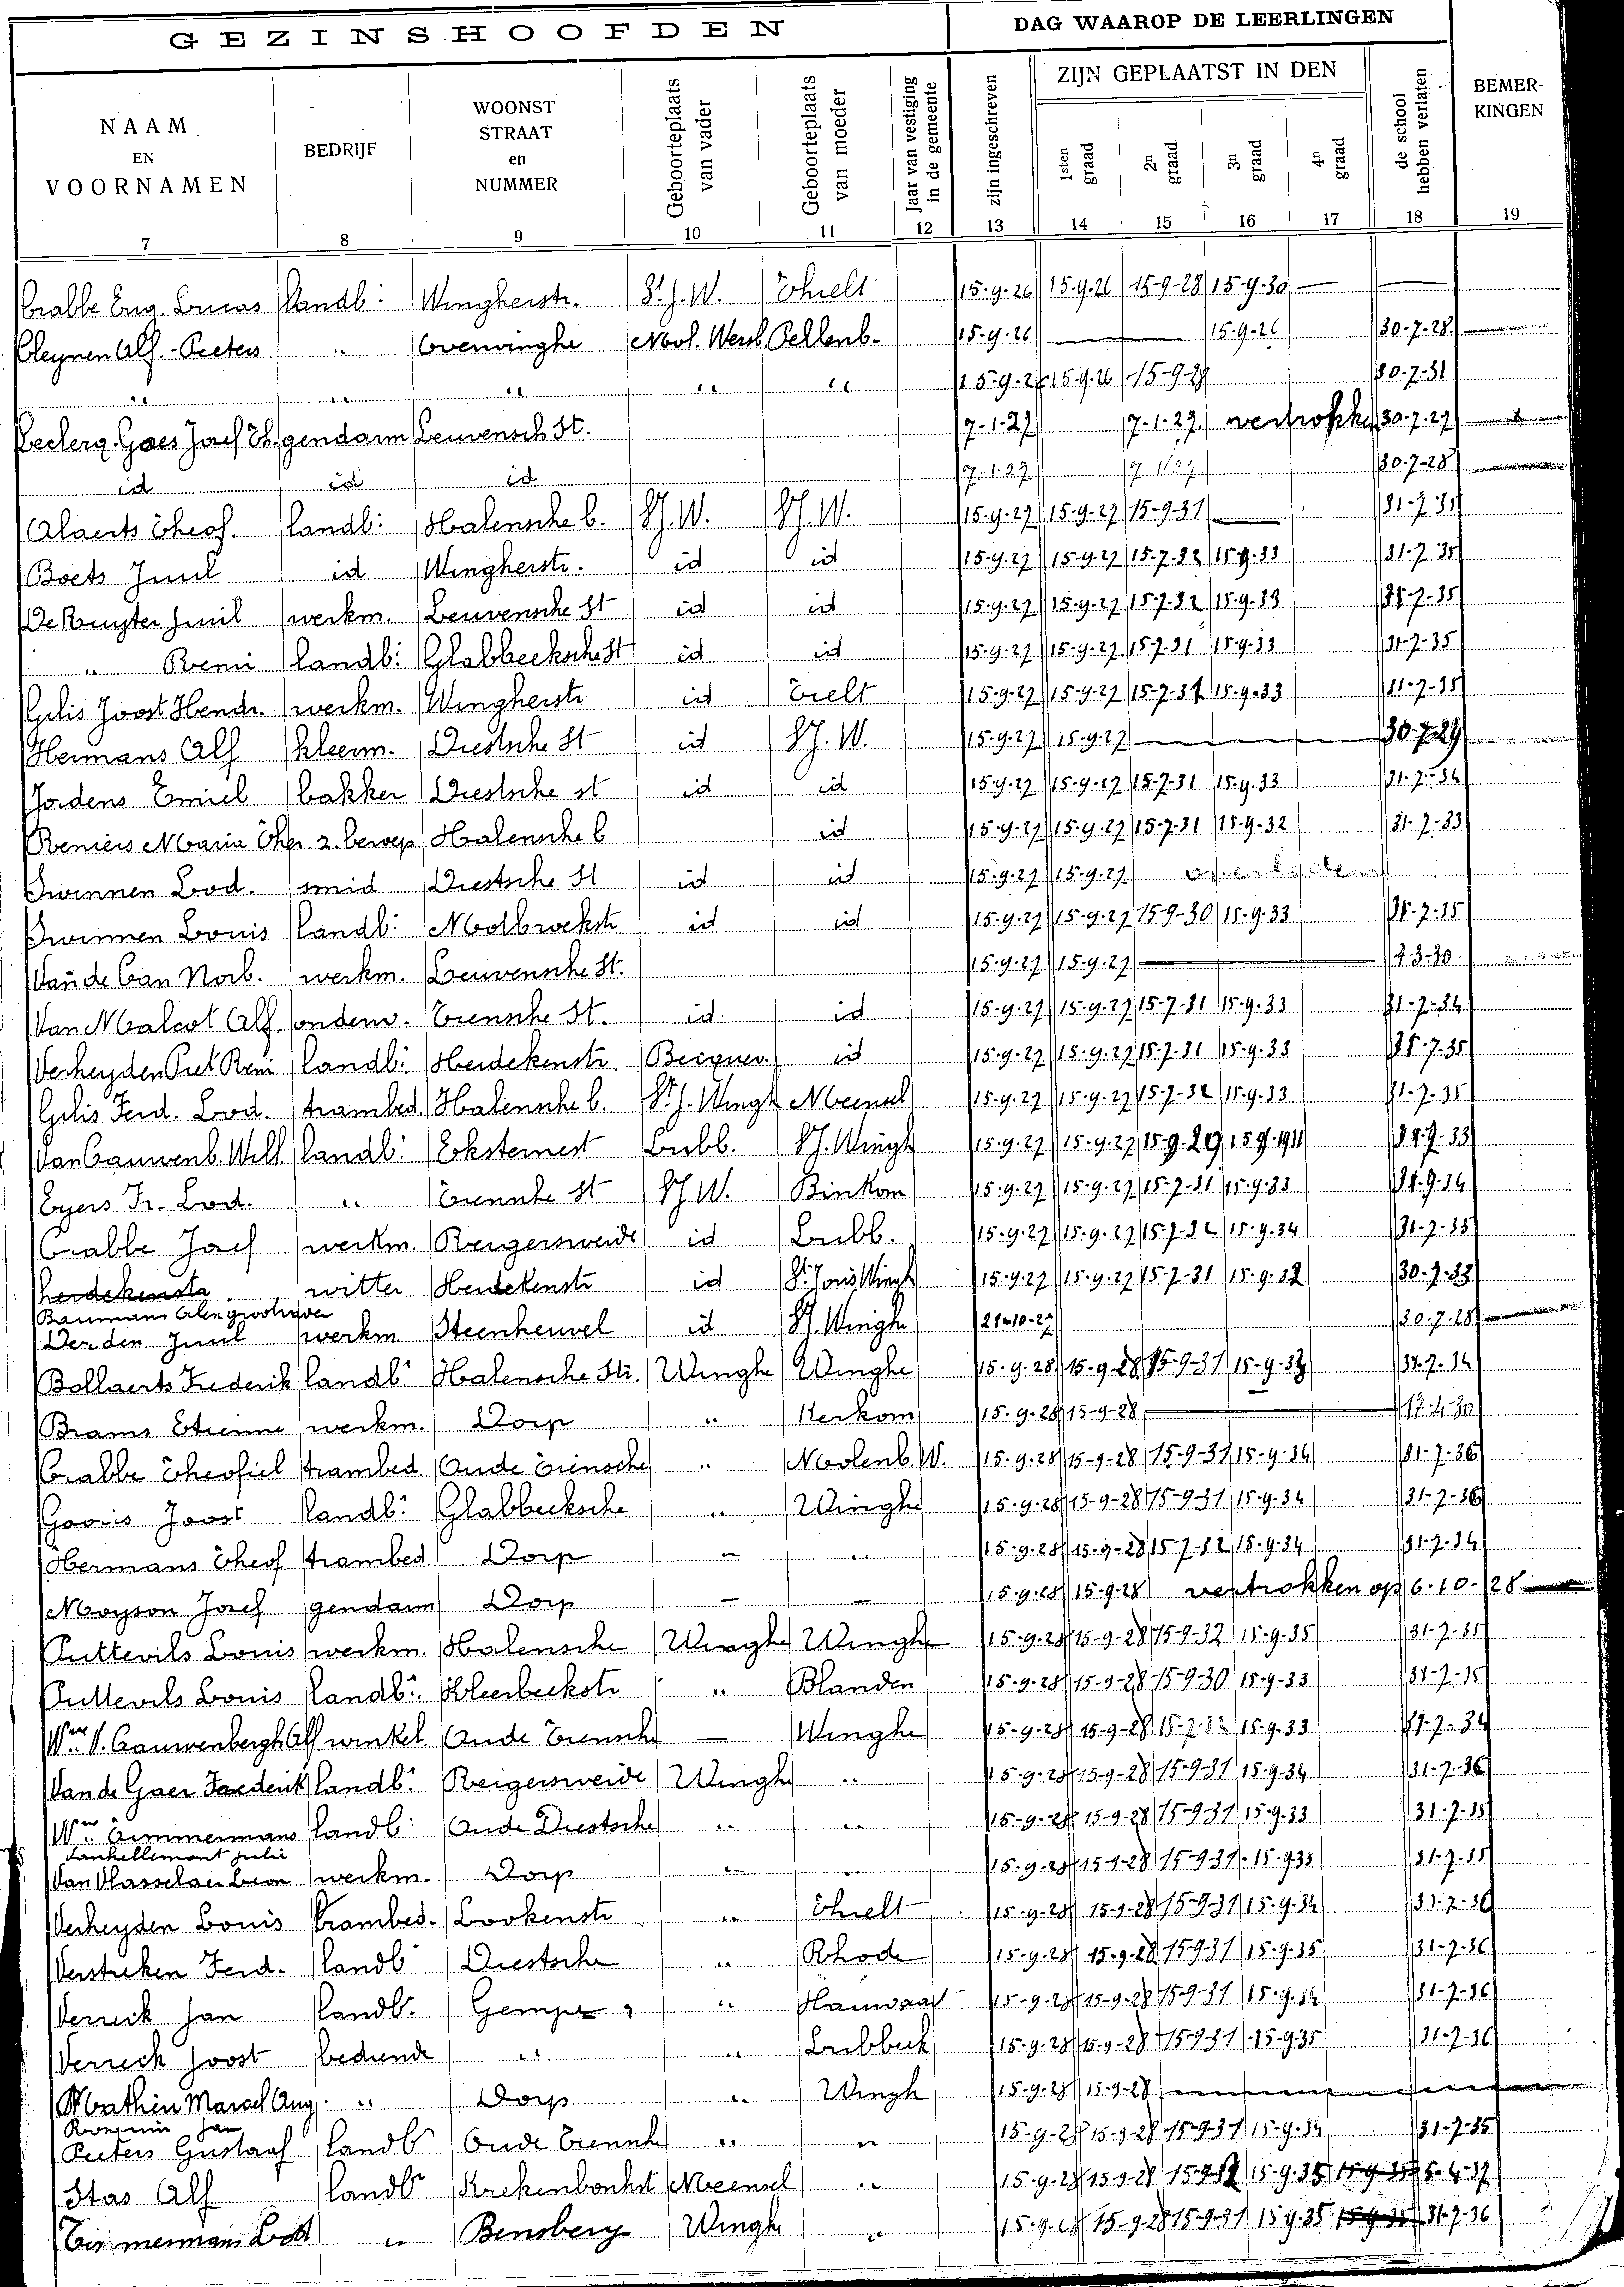 GEZINSHOOFDEN
DAG WAAROP DE LEERLINGEN
NAAM EN VOORNAMEN
BEDRIJF
WOONST STRAAT en NUMMER
Geboorteplaats van vader
Geboorteplaats van moeder
Jaar van vestiging in de gemeente
zijn ingeschreven
ZIJN GEPLAATST IN DEN
1sten graad
2n graad
3n graad
4n graad
de school hebben verlaten
BEMERKINGEN
7 8 9 10 11 12 13 14 15 16 17 18 19
Crabbe Eug. Lucas landb: Wingherstr. St. J. W. Thielt 15-9-26 15-9-26 15-9-28 15-9-30 — —
Cleynen Alf. - Peeters " Overwinghe Mool. Wersb. Pellenb. 15-9-26 — 15-9-26 30-7-28
" " " " " 15-9-26 15-9-26 15-9-28 30-7-31
Leclerq. Goes Josef Th. gendarm Leuvensch St. 7-1-27 7-1-27 vertrokken 30-7-27
id id id 7-1-27 7-1-27 30-7-28
Alaerts Theof. landb: Halensche b. St J. W. St J. W. 15-9-27 15-9-27 15-9-31 — 31-7-31
Boets Jmil id Wingherstr. id id 15-9-27 15-9-27 15-7-32 15-9-33 31-7-35
De Ruyter Jmil werkm. Leuvensche St id id 15-9-27 15-9-27 15-7-32 15-9-33 31-7-35
" Remi landb: Glabbeeksche St id id 15-9-27 15-9-27 15-7-31 15-9-33 31-7-35
Gilis Joost Hendr. werkm. Wingherstr id Tielt 15-9-27 15-9-27 15-7-31 15-9-33 31-7-35
Hermans Alf kleerm. Diestsche St id St J. W. 15-9-27 15-9-27 — 30-7-29
Jordens Emiel bakker Diestsche st id id 15-9-27 15-9-27 15-7-31 15-9-33 31-7-34
Reniers Maria Ther. z. beroep Halensche b id 15-9-27 15-9-27 15-7-31 15-9-32 31-7-33
Swinnen Lod. smid Diestsche St id id 15-9-27 15-9-27
Swinnen Louis landb: Molbroekstr id id 15-9-27 15-9-27 15-9-30 15-9-33 31-7-35
Van de Can Norb. werkm. Leuvensche St. 15-9-27 15-9-27 — 7-3-30
Van Malcot Alf ondern. Tiensche St. id id 15-9-27 15-9-27 15-7-31 15-9-33 31-7-34
Verheyden Piet Remi landb: Heidekenstr Becquev. id 15-9-27 15-9-27 15-7-31 15-9-33 31-7-35
Gilis Ferd. Lod. trambed. Halensche b. St. J. Wingh Meensel 15-9-27 15-9-27 15-7-32 15-9-33 31-7-35
Van Cauwenb. Will landb: Eksternest Lubb. St J. Wingh 15-9-27 15-9-27 15-9-29 15-9-1931
Eyers Fr. Lod. " Tiensche St St J W. Binkom 15-9-27 15-9-27 15-7-31 15-9-33
Crabbe Josef werkm. Reigersweide id Lubb. 15-9-27 15-9-27 15-7-32 15-9-34 31-7-35
heidekenstr witter Heidekenstr id St. Joris Wingh 15-9-27 15-9-27 15-7-31 15-9-32 30-7-33
Baumans
Jmil werkm Steenheuvel id St J. Winghe 21-10-27 30-7-28
Bollaerts Frederik landb: Halensche Str. Winghe Winghe 15-9-28 15-9-28 15-9-31 15-9-33 31-7-34
Brams Etienne werkm. Dorp " Kerkom 15-9-28 15-9-28 — 17-4-30
Crabbe Theofiel trambed. Oude Tiensche " Moolenb. W. 15-9-28 15-9-28 15-9-31 15-9-34 31-7-36
Goovis Joost landb: Glabbeeksche " Winghe 15-9-28 15-9-28 15-9-31 15-9-34 31-7-36
Hermans Theof trambed. Dorp " " 15-9-28 15-9-28 15-7-32 15-9-34 31-7-34
Moyson Josef gendarm Dorp — — 15-9-28 15-9-28 vertrokken op 6-10-28
Puttevils Louis werkm. Halensche Winghe Winghe 15-9-28 15-9-28 15-9-32 15-9-35 31-7-35
Puttevils Louis landb: Kleerbeekstr " Blanden 15-9-28 15-9-28 15-9-30 15-9-33 31-7-35
Wwe V. Cauwenbergh Alf winkel. Oude Tiensche — Winghe 15-9-28 15-9-28 15-7-32 15-9-33 31-7-34
Van de Gaer Frederik landb: Reigersweide Winghe " 15-9-28 15-9-28 15-9-31 15-9-34 31-7-36
Wwe Timmermans landb: Oude Diestsche " " 15-9-28 15-9-28 15-9-31 15-9-33 31-7-35
Vankellemont Julie
Van Hasselaer Leon werkm. Dorp " " 15-9-28 15-9-28 15-9-31 15-9-33 31-7-35
Verheyden Louis trambed. Lookenstr " Thielt 15-9-28 15-9-28 15-9-31 15-9-34 31-7-36
Verstreken Ferd. landb Diestsche " Rhode 15-9-28 15-9-28 15-9-31 15-9-35 31-7-36
Verreck Jan landb. Gempe " Hauwaart 15-9-28 15-9-28 15-9-31 15-9-34 31-7-36
Verreck Joost bediende " " Lubbeek 15-9-28 15-9-28 15-9-31 15-9-35 31-7-36
Mathen Marcel Aug. " Dorp " Wingh 15-9-28 15-9-28
Peeters Gustaaf landb Oude Tiensche " " 15-9-28 15-9-28 15-9-31 15-9-34 31-7-35
Stas Alf landbr Krekenbochst Meensel " 15-9-28 15-9-28 15-9-32 15-9-35 5-4-37
Timmermans Lod " Bensberg Wingh " 15-9-28 15-9-28 15-9-31 15-9-35 31-7-36